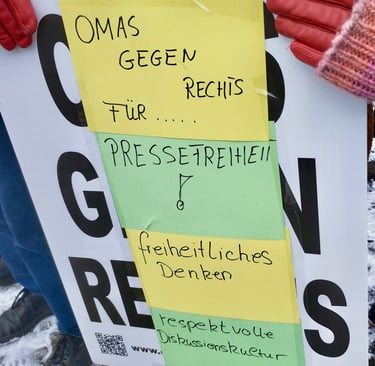 OMAS
GEGEN
RECHTS
FÜR .....
PRESSEFREIHEIT
!
freiheitliches
Denken
respektvolle
Diskussionskultur